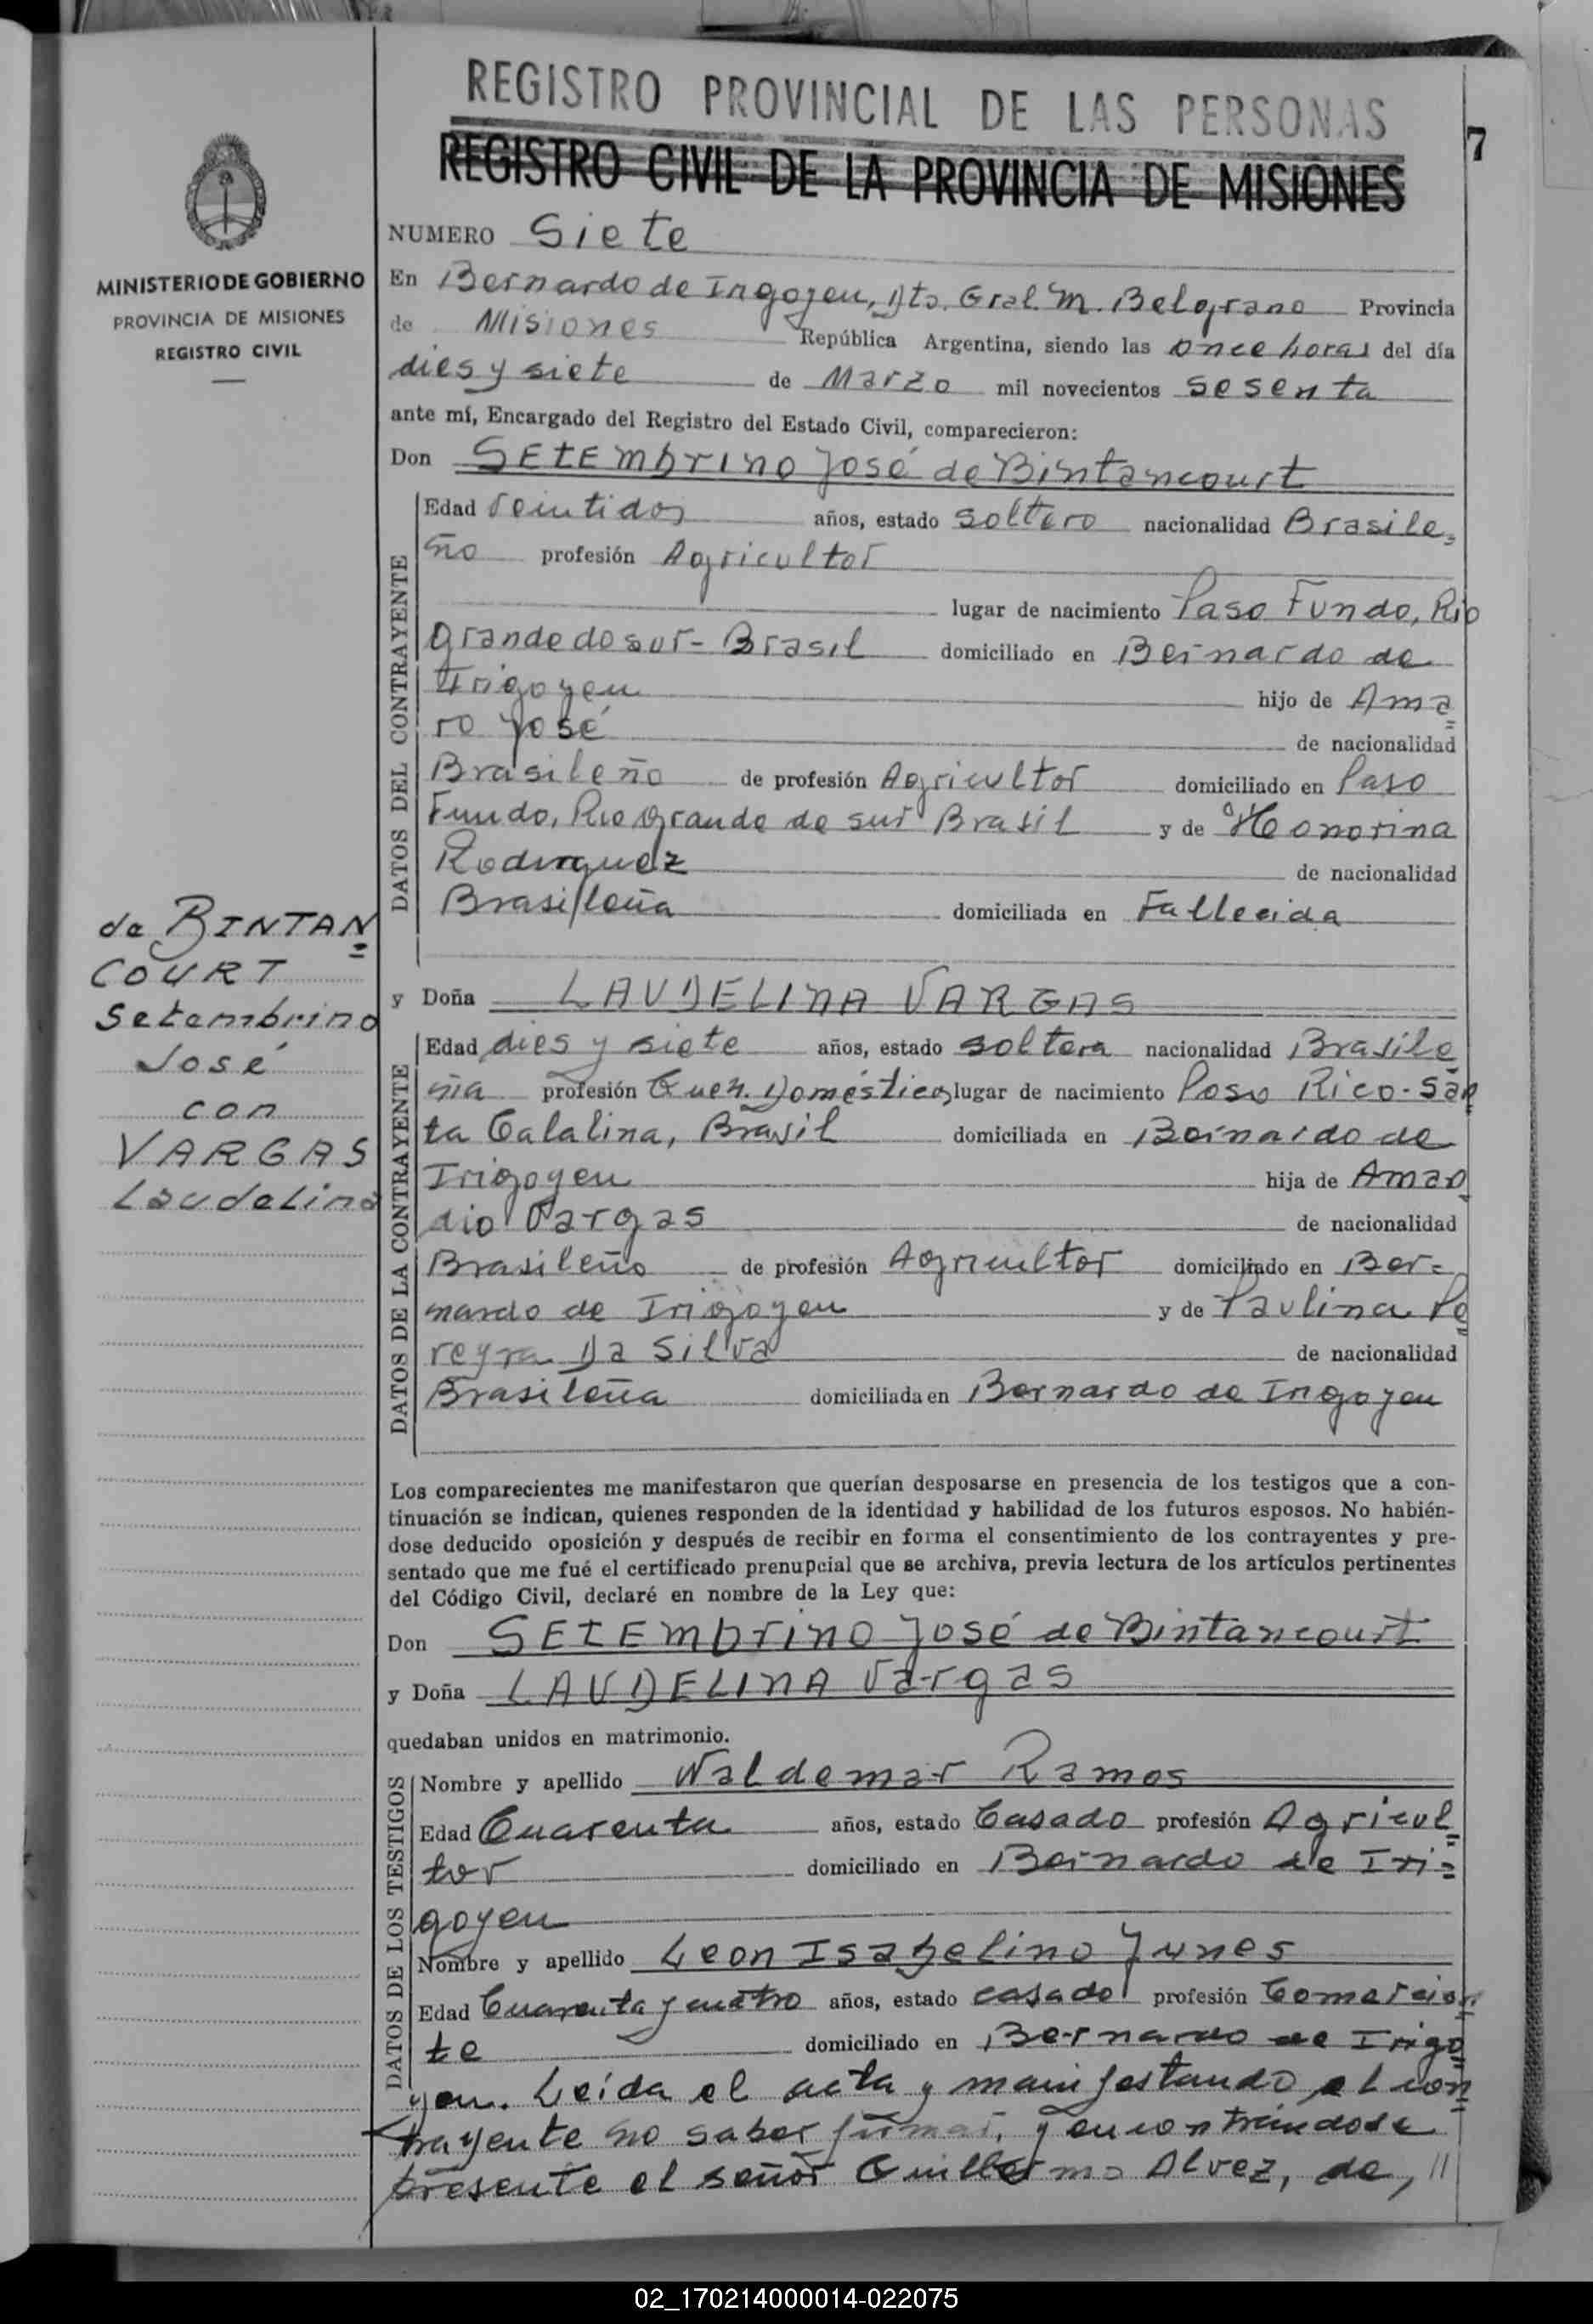 REGISTRO PROVINCIAL DE LAS PERSONAS
REGISTRO CIVIL DE LA PROVINCIA DE MISIONES
7
MINISTERIO DE GOBIERNO
PROVINCIA DE MISIONES
REGISTRO CIVIL
NUMERO Siete
En Bernardo de Irigoyen, Dto. Gral. M. Belgrano Provincia
de Misiones República Argentina, siendo las once horas del día
dies y siete de Marzo mil novecientos sesenta
ante mí, Encargado del Registro del Estado Civil, comparecieron:
Don SETEMbrino José de Bintancourt
DATOS DEL CONTRAYENTE
Edad veintidos años, estado soltero nacionalidad Brasile=
ño profesión Agricultor
lugar de nacimiento Paso Fundo, Rio
grande do sur - Brasil domiciliado en Bernardo de
Irigoyen hijo de Ama=
ro José de nacionalidad
Brasileño de profesión Agricultor domiciliado en Paso
Fundo, Rio Grande do sur Brasil y de Honorina
Rodriguez de nacionalidad
Brasileña domiciliada en Fallecida
de BINTAN=
COURT
Setembrino
José
con
VARGAS
Laudelina
y Doña LAUDELINA VARGAS
DATOS DE LA CONTRAYENTE
Edad dies y siete años, estado soltera nacionalidad Brasile
ña profesión Queh. Domésticos lugar de nacimiento Poso Rico - San
ta Catalina, Brasil domiciliada en Bernardo de
Irigoyen hija de Aman
dio Vargas de nacionalidad
Brasileño de profesión Agricultor domiciliado en Ber=
nardo de Irigoyen y de Paulina Pe
reyra Da Silva de nacionalidad
Brasileña domiciliada en Bernardo de Irigoyen
Los comparecientes me manifestaron que querían desposarse en presencia de los testigos que a con-
tinuación se indican, quienes responden de la identidad y habilidad de los futuros esposos. No habién-
dose deducido oposición y después de recibir en forma el consentimiento de los contrayentes y pre-
sentado que me fué el certificado prenupcial que se archiva, previa lectura de los artículos pertinentes
del Código Civil, declaré en nombre de la Ley que:
Don SETEMbrino José de Bintancourt
y Doña LAUDELINA Vargas
quedaban unidos en matrimonio.
DATOS DE LOS TESTIGOS
Nombre y apellido Waldemar Ramos
Edad Cuarenta años, estado Casado profesión Agricul=
tor domiciliado en Bernardo de Iri=
goyen
Nombre y apellido Leon Isabelino Yunes
Edad Cuarenta y cuatro años, estado casado profesión Comercian
te domiciliado en Bernardo de Irigo
yen. Leída el acta y manifestando el con=
trayente no saber firmar, y encontrándose
presente el señor Guillermo Alvez, de, //
02_170214000014-022075